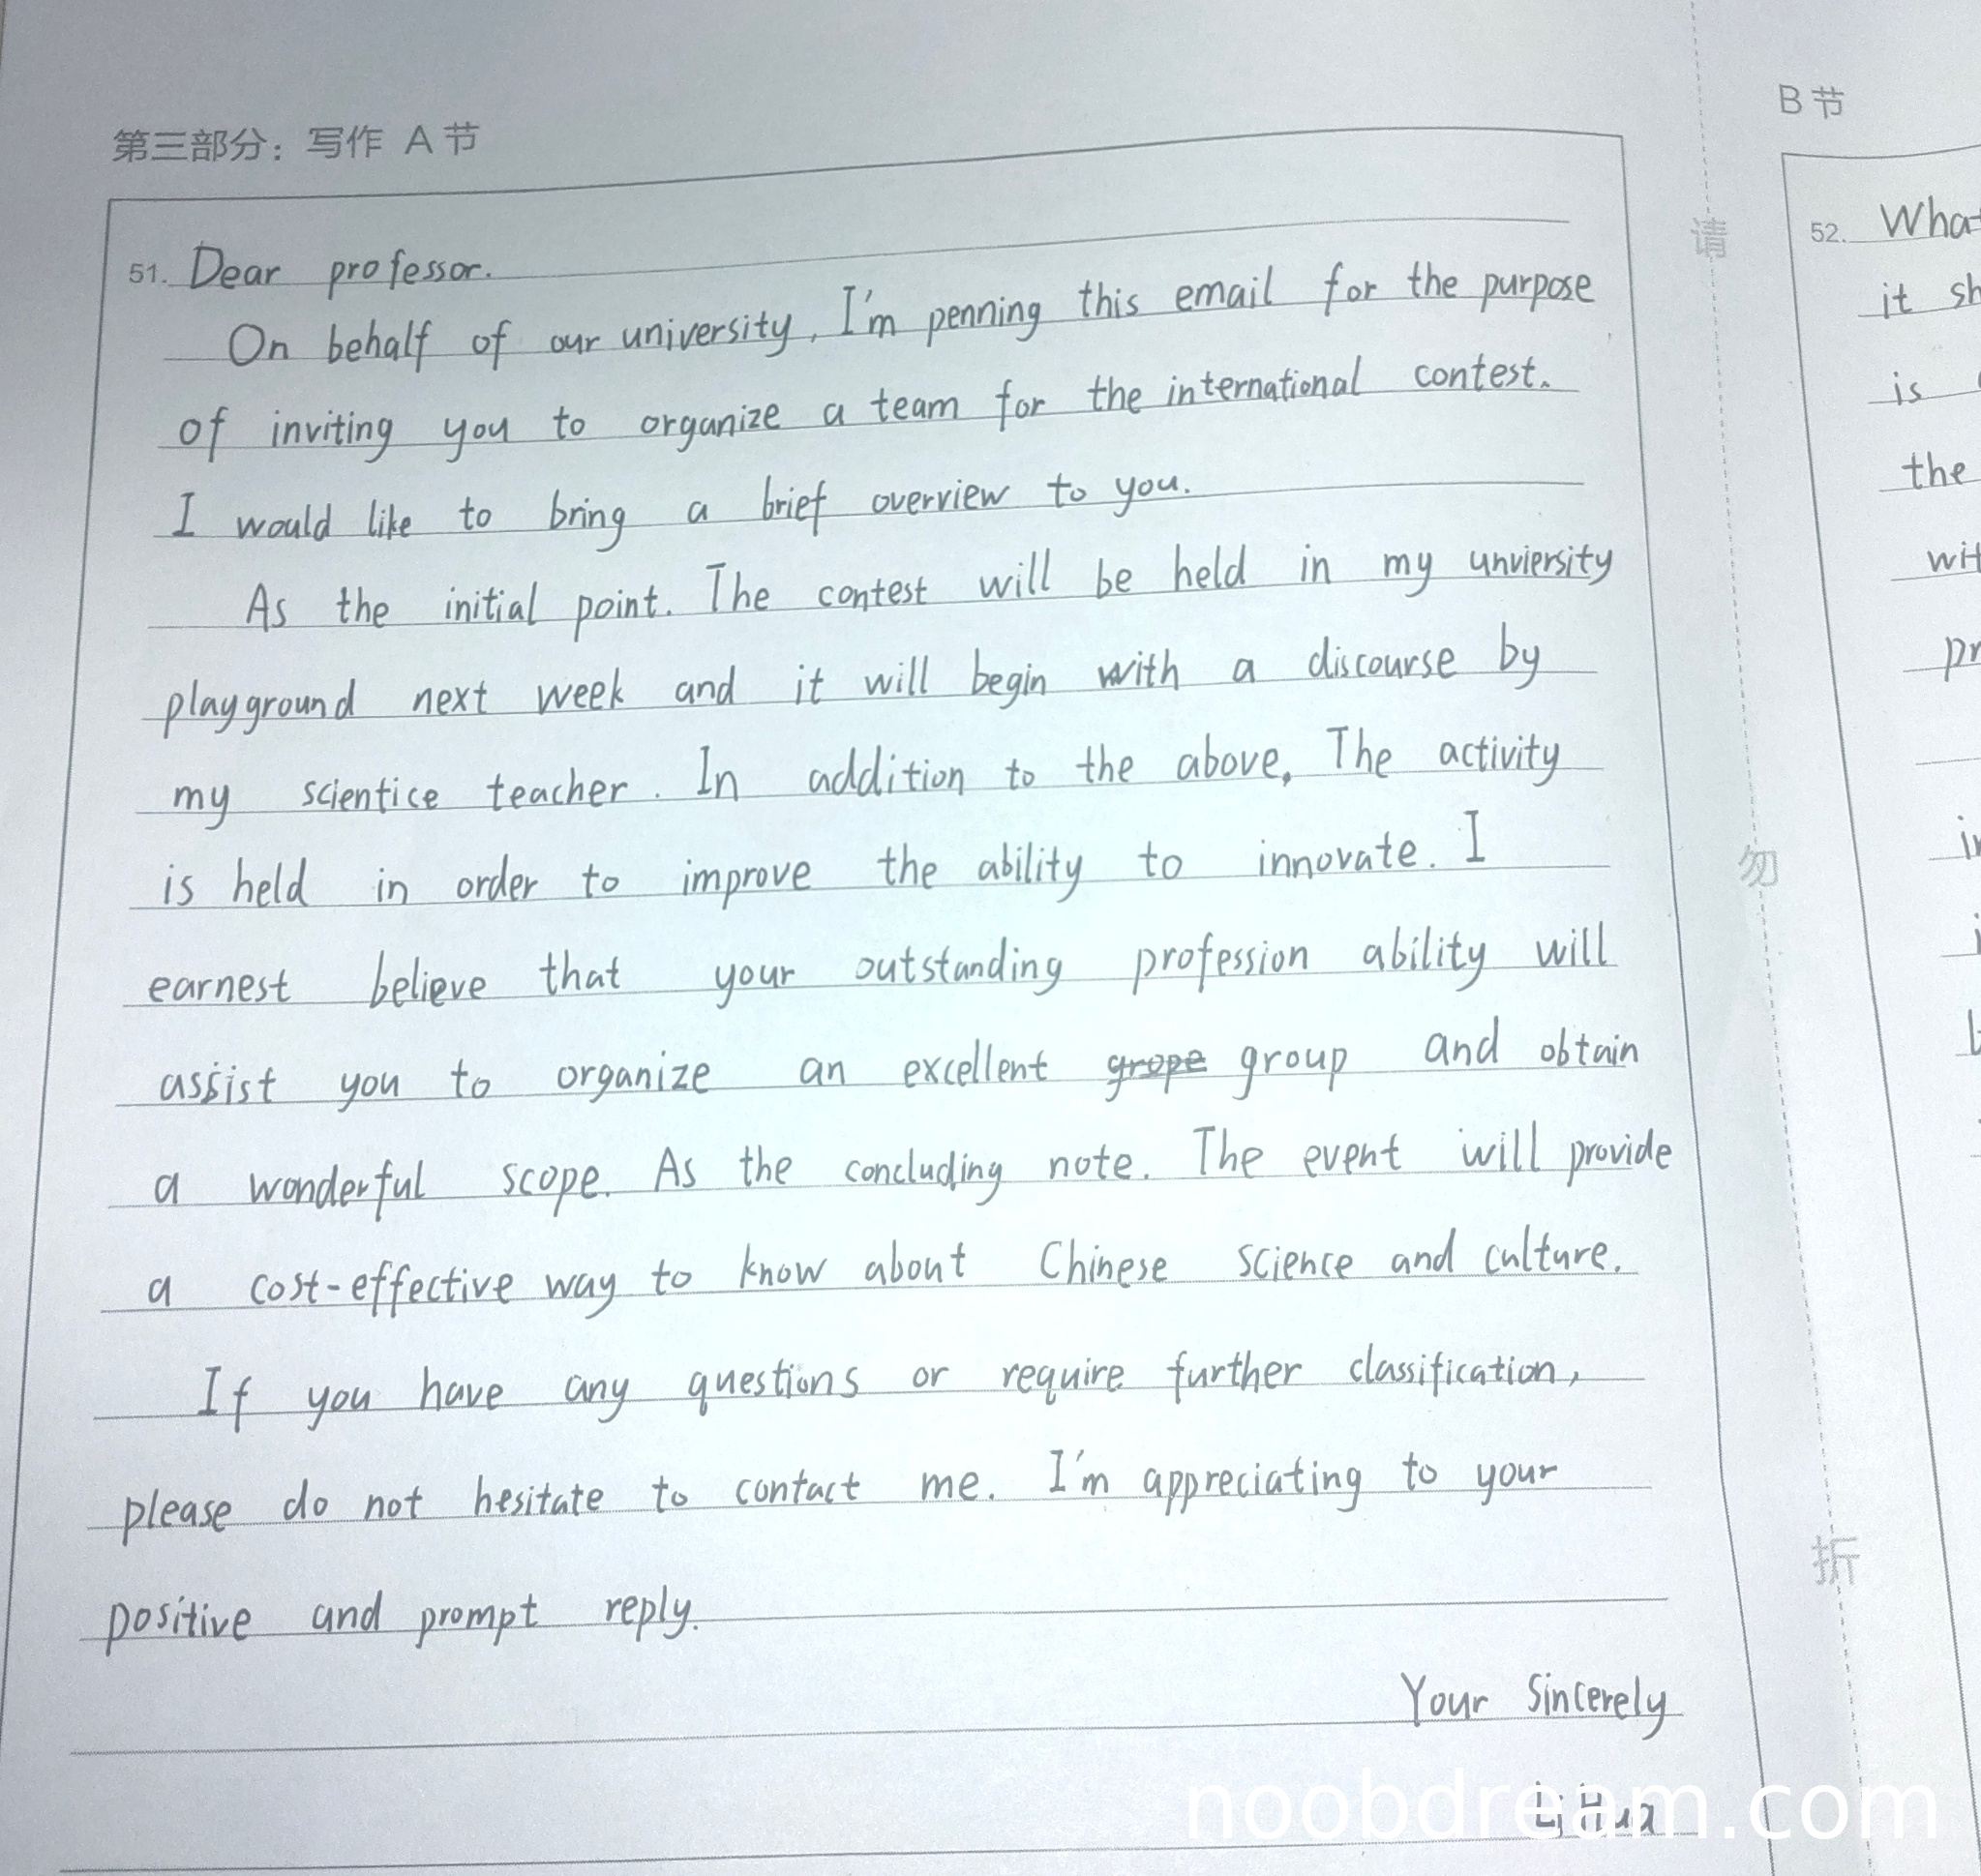 第三部分：写作 A节
51. Dear professor.
On behalf of our university, I'm penning this email for the purpose
of inviting you to organize a team for the international contest.
I would like to bring a brief overview to you.
As the initial point. The contest will be held in my unviersity
playground next week and it will begin with a discourse by
my scientice teacher. In addition to the above, The activity
is held in order to improve the ability to innovate. I
earnest believe that your outstanding profession ability will
assist you to organize an excellent grope group and obtain
a wonderful scope. As the concluding note. The event will provide
a cost-effective way to know about Chinese science and culture.
If you have any questions or require further classification,
please do not hesitate to contact me. I'm appreciating to your
positive and prompt reply.
Your Sincerely
Li Hua
请
勿
折
B节
52. What
it sh
is
the
wit
pr
noobdream.com